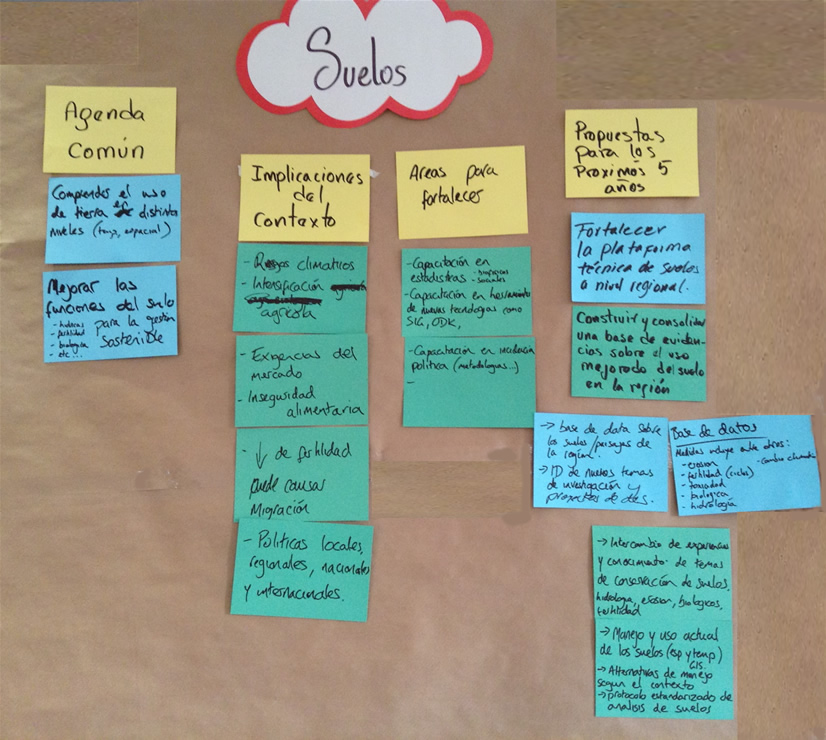 Suelos
Agenda
Común
Comprender el uso
de tierra en distintos
niveles (temp, espacial)
Mejorar las
funciones del suelo
- hídricas para la gestión
- fertilidad
- biológica Sostenible
- etc...
Implicaciones
del
Contexto
- Riesgos climáticos
- Intensificación
agrícola
- Exigencias del
mercado
- Inseguridad
alimentaria
- ↓ de fertilidad
puede causar
Migración
- Políticas locales,
regionales, nacionales
y internacionales.
Areas para
fortalecer
- Capacitación en
estadísticas - biofísicas
- sociales
- Capacitación en herramientas
de nuevas tecnologías como
SIG, ODK,
- Capacitación en incidencia
política (metodologías...)
-
Propuestas
para los
Próximos 5
años
Fortalecer
la plataforma
técnica de suelos
a nivel regional.
Construir y consolidar
una base de eviden-
cias sobre el uso
mejorado del suelo
en la región
→ base de data sobre
los suelos/paisajes de
la región.
→ ID de nuevos temas
de investigación y
proyectos de des.
Base de datos
Medidas incluye entre otros:
- erosion
- fertilidad (ciclos)
- cambio climático
- toxicidad
- biologica
- hidrología
→ Intercambio de experiencias
y conocimiento de temas
de conservación de suelos,
hidrología, erosion, biologicos,
fertilidad
→ Manejo y uso actual
de los suelos (esp y temp)
GIS.
→ Alternativas de manejo
segun el contexto
→ protocolo estandarizado de
analisis de suelos